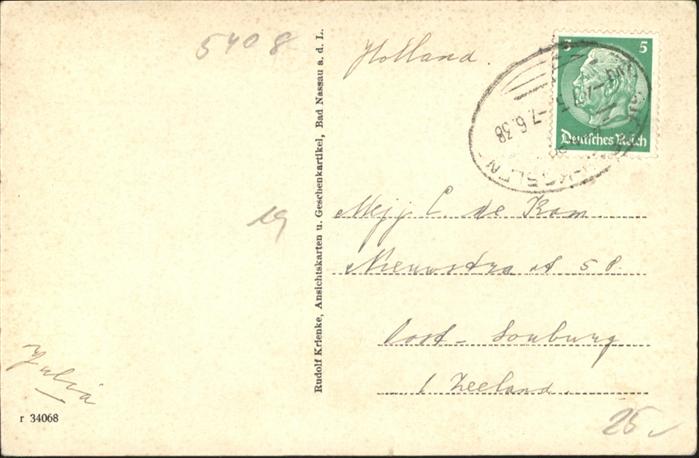 5408
Holland.
5
Deutsches Reich
-7.6.38
19
Mejj. C. de Kam.
Nieuwstraat 58.
Oost-Souburg
Zeeland.
Rudolf Krienke, Ansichtskarten u. Geschenkartikel, Bad Nassau a. d. L.
Julia
r 34068
25